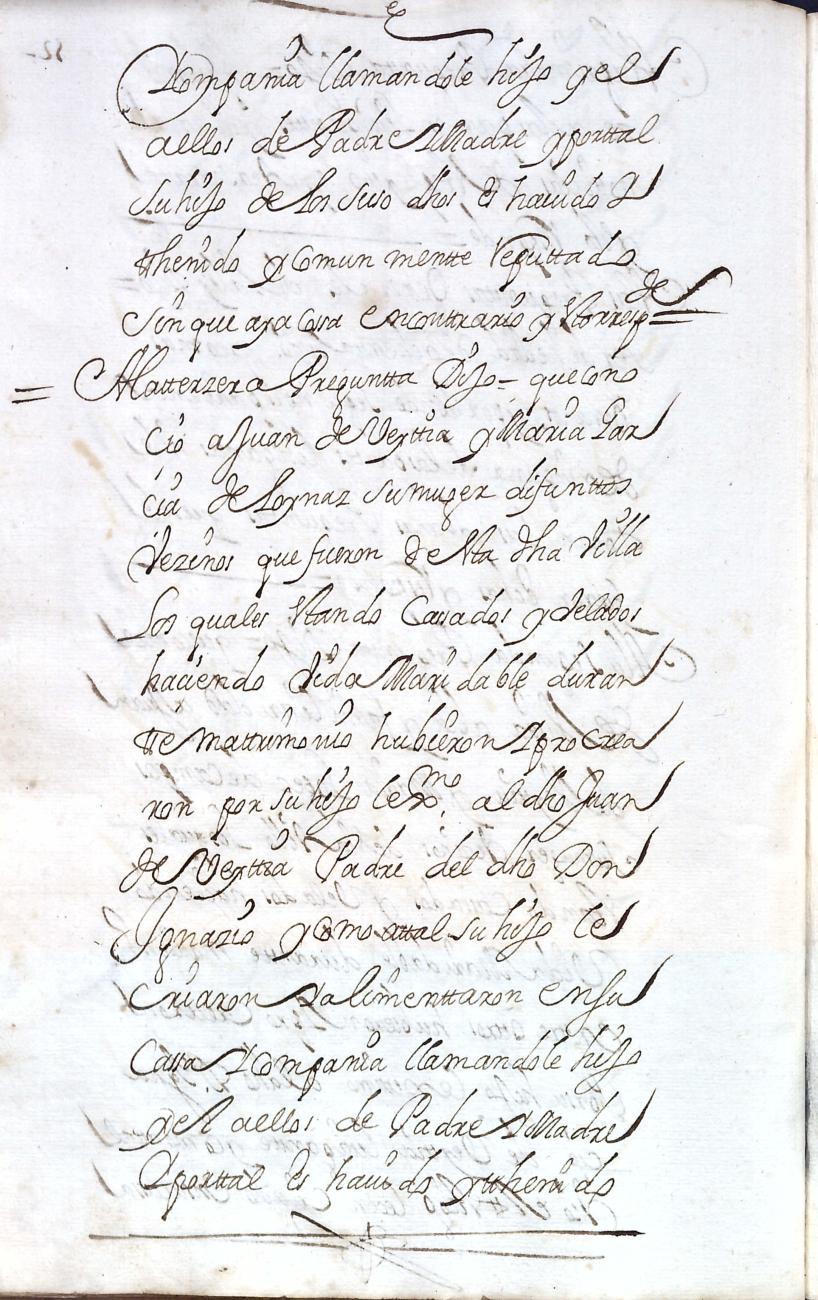 Compania llamandole hijo y el
a ellos de Padre y Madre y por ttal
su hijo de los suso dhos es hauido y
thenido y comun mentte Reputtado
sin que aya cosa en conttrario y Resp
de
A la tterzera Preguntta Dijo = que cono
cio a Juan de Verttia y Maria Gar
cia de Loynaz su muger difunttos
Vezinos que fueron de esta dha Villa
Los quales estando Casados y Velados
haciendo Vida Mari dable duran
tte mattrimonio hubieron y procrea
ron por su hijo lexmo. al dho Juan
de Verttia Padre del dho Don
Ignazio y como a ttal su hijo le
criaron y alimenttaron en su
Cassa y Compania llamandole hijo
y el a ellos de Padre y Madre
y por ttal es hauido y tthenido